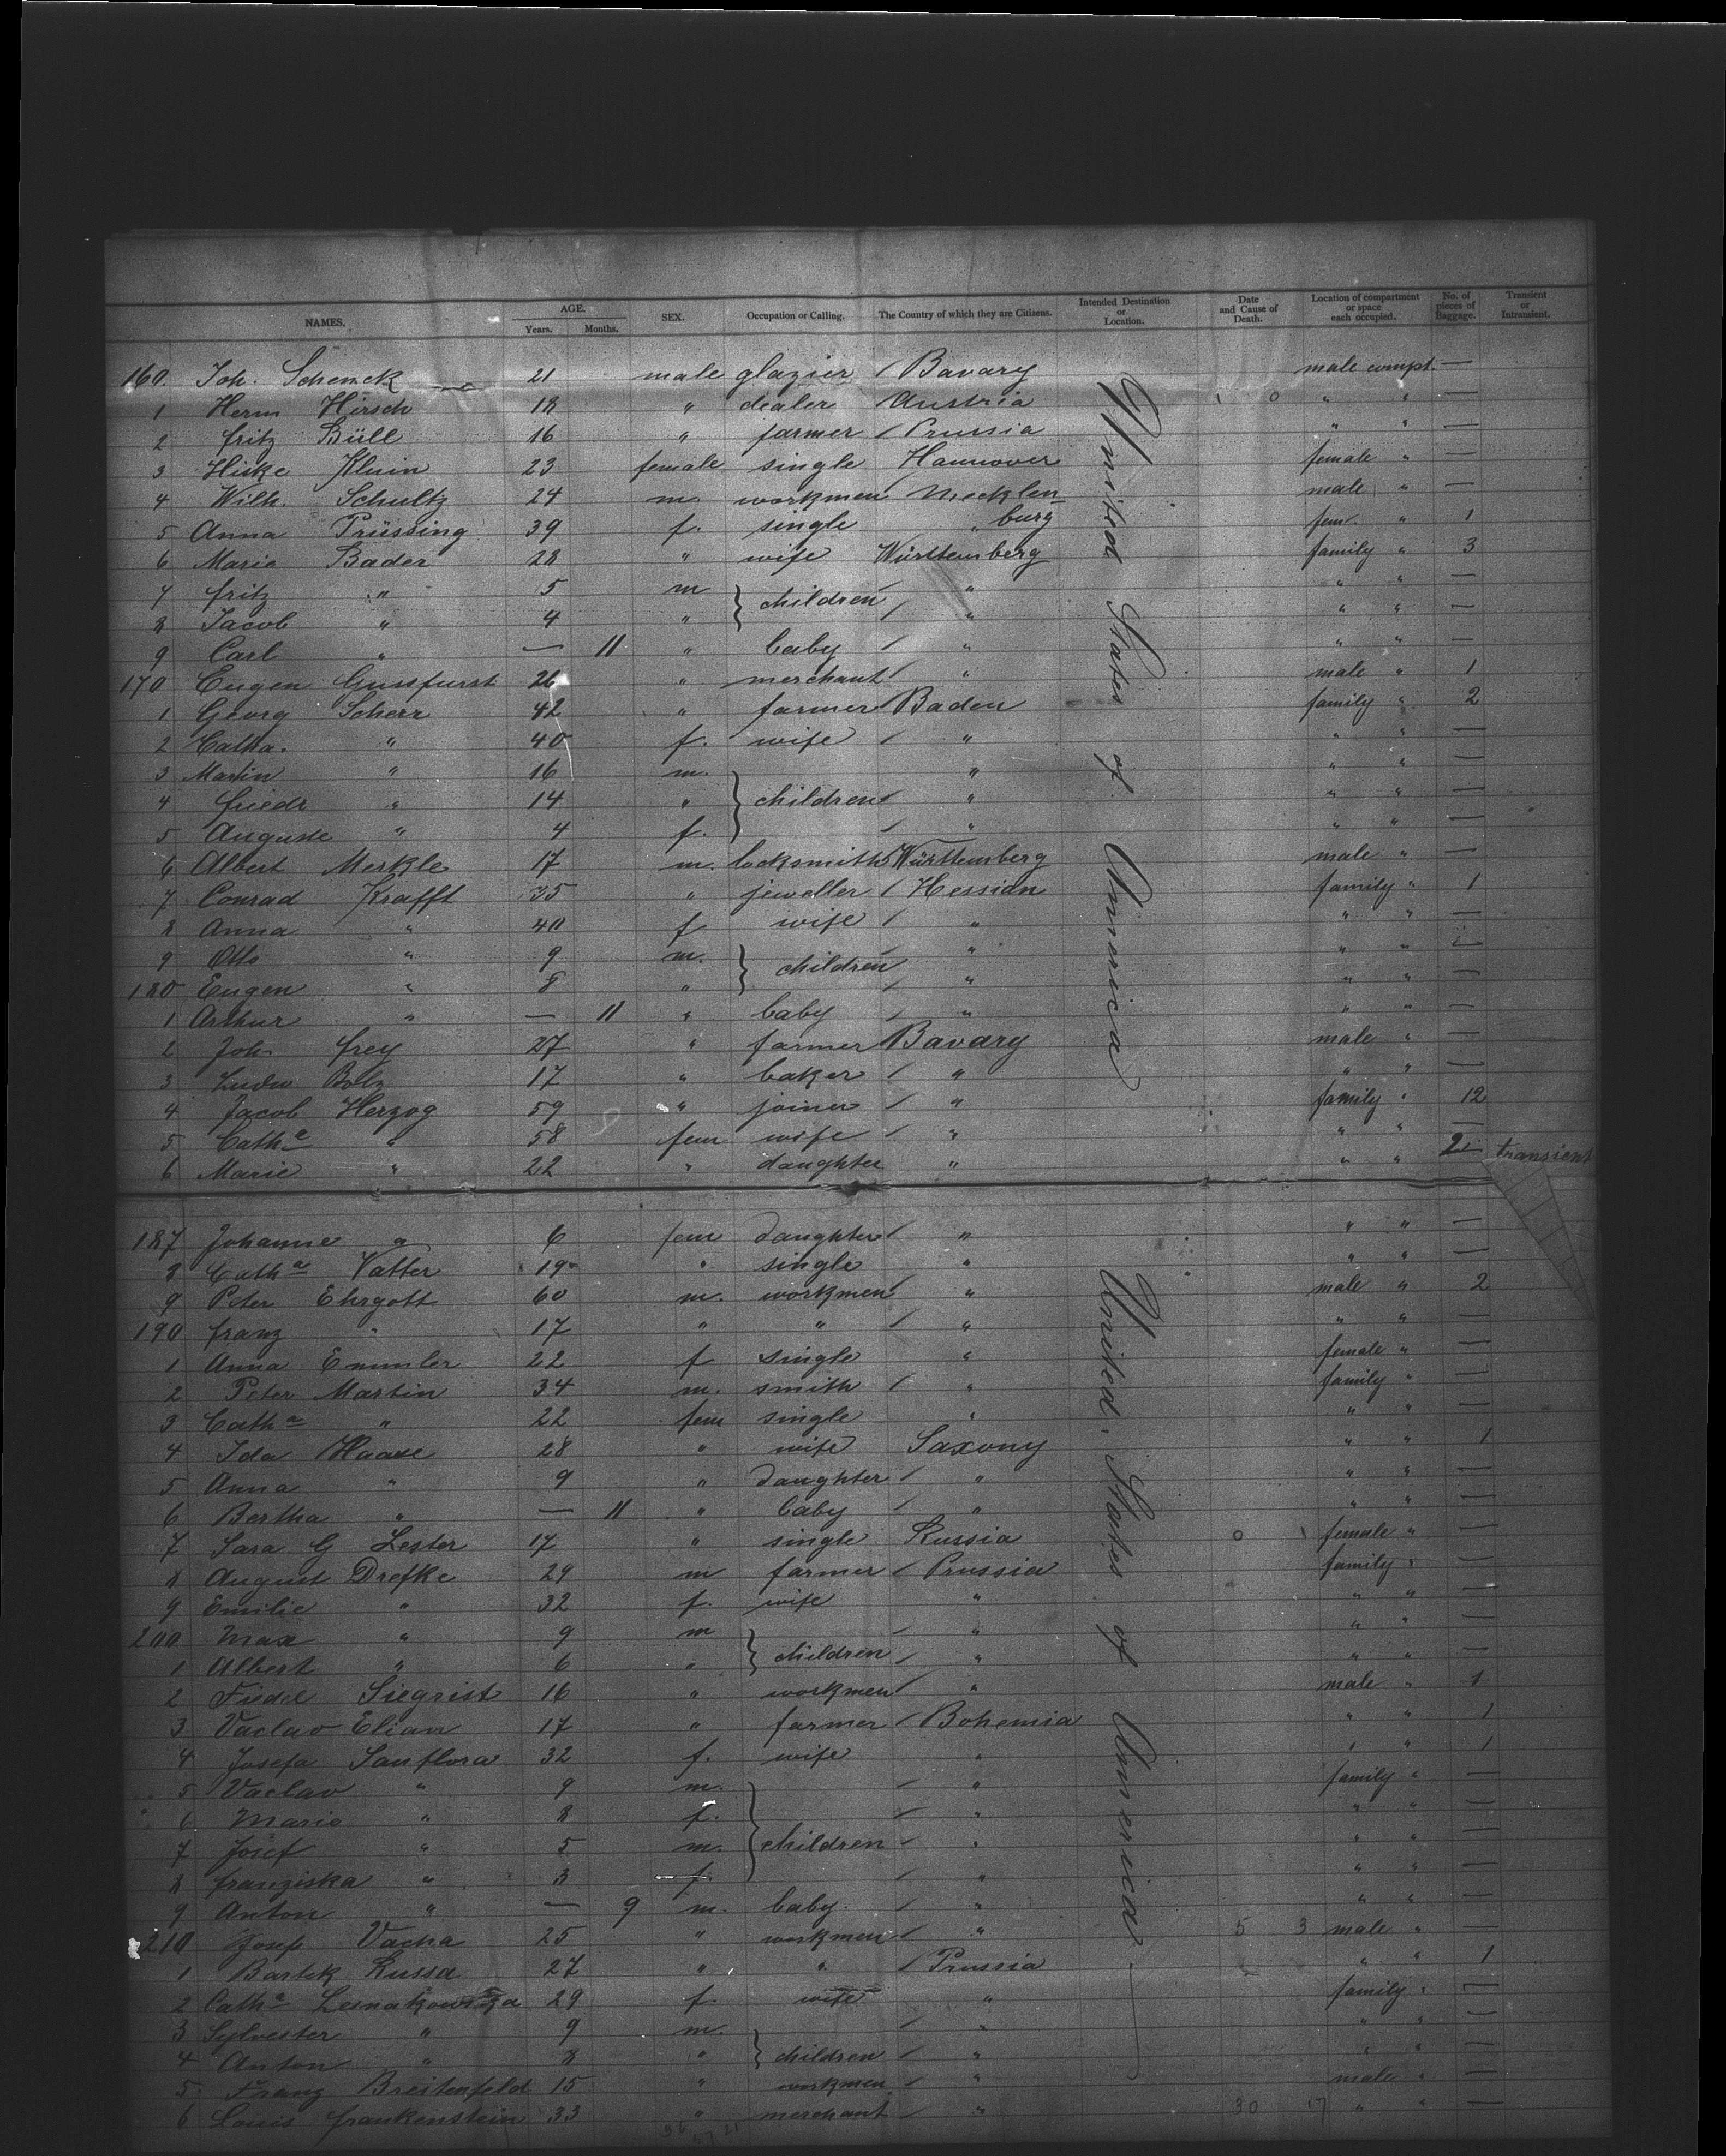 NAMES. AGE. Years. Months. SEX. Occupation or Calling. The Country of which they are Citizens. Intended Destination or Location. Date and Cause of Death. Location of compartment or space each occupied. No. of pieces of Baggage. Transient or Intransient.
160 Joh. Schenck 21 male glazier / Bavary male compt. —
1 Herm Hirsch 18 " dealer Austria " " —
2 fritz Büll 16 " farmer / Prussia " " —
3 Hiske Kluin 23 female single Hannover female " —
4 Wilh. Schultz 24 m. workmen Mecklen- male " —
5 Anna Prüssing 39 f. single " burg fem. " 1
6 Marie Bader 28 " wife Württemberg family " 3
7 fritz " 5 m } children / " " " —
8 Jacob " 4 " / " " " —
9 Carl " — 11 " baby / " " " —
170 Eugen Gussfurst 26 " merchant / " male " 1
1 Georg Scherr 42 " farmer / Baden family " 2
2 Catha. " 40 f. wife / " " " —
3 Martin " 16 m. " " " —
4 friedr " 14 " } children / " " " —
5 Auguste " 4 f. / " " " —
6 Albert Merkle 17 m. locksmith Württemberg male " —
7 Conrad Krafft 35 " jeweller / Hessian family " 1
8 Anna " 40 f wife / " " " —
9 Otto " 9 m. } children / " " " —
180 Eugen " 8 " / " " " —
1 Arthur " — 11 " baby / " " " —
2 Joh. frey 27 " farmer Bavary male " —
3 Ludw Bolz 17 " baker / " " " —
4 Jacob Herzog 59 " joiner / " family " 12
5 Catha " 58 fem wife / " " " —
6 Marie " 22 " daughter " " " 2 transient
United States of America
187 Johanne " 6 fem daughter / " " " —
8 Catha Vatter 19 " single " " " —
9 Peter Ehrgott 60 m. workmen / " male " 2
190 franz " 17 " " / " " " —
1 Anna Emmler 22 f single " female " —
2 Peter Martin 34 m. smith / " family " —
3 Catha " 22 fem single " " " —
4 Ida Haase 28 " wife Saxony " " 1
5 Anna " 9 " daughter / " " " —
6 Bertha " — 11 " baby / " " " —
7 Sara G Lester 17 " single Russia female " —
8 August Drefke 29 m farmer / Prussia family " —
9 Emilie " 32 f. wife " " " —
200 Max " 9 m } children / " " " —
1 Albert " 6 " / " " " —
2 Fiedel Siegrist 16 " workmen / " male " 1
3 Vaclav Elian 17 " farmer / Bohemia " " 1
4 Josefa Sauflora 32 f. wife " " " 1
5 Vaclav " 9 m. / " family " —
6 Marie " 8 f. / " " " —
7 Josef " 5 m. } children / " " " —
8 franziska " 3 f. / " " " —
9 Anton " — 9 m. baby / " " " —
210 Josep Vacha 25 " workmen / " 5 3 male " —
1 Bartek Russa 27 " " / Prussia " " 1
2 Catha 29 f. wife " family " —
3 Sylvester " 9 m. / " " " —
4 Anton " 8 " } children / " " " —
5 Franz Breitenfeld 15 " workmen / " male " —
6 Louis frankenstein 33 " merchant / " 30 17 " " —
United States of America